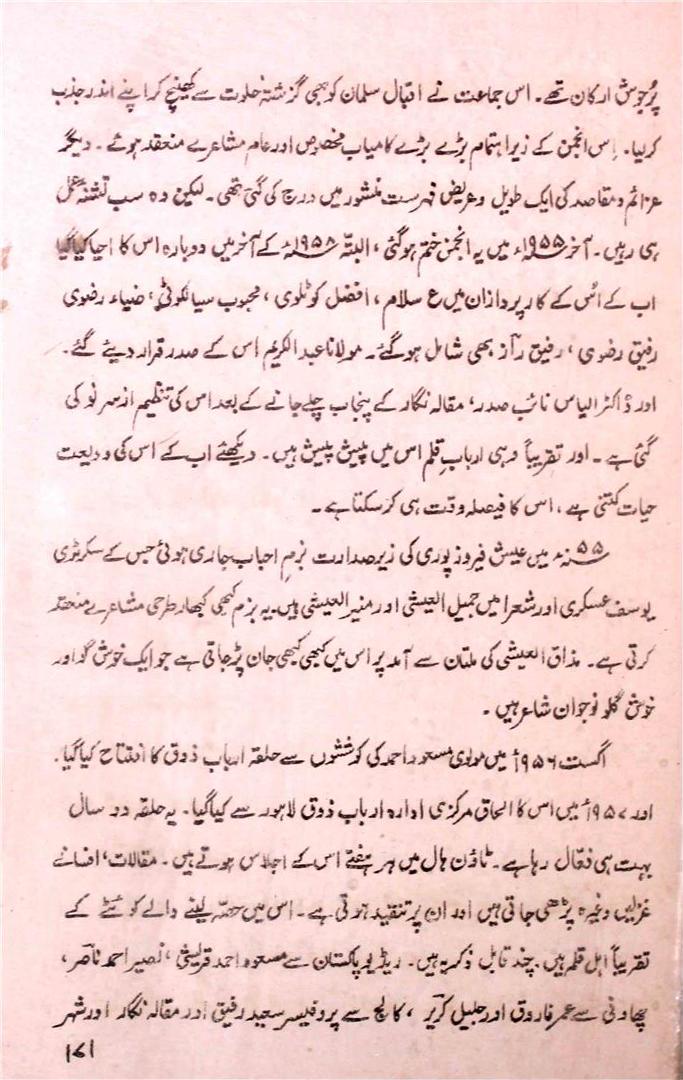 پُرجوش ارکان تھے۔ اس جماعت نے اقبال سلمان کو بھی گزشتہ خلوت سے کھینچ کر اپنے اندر جذب
کر لیا۔ اِس انجمن کے زیرِ اہتمام بڑے بڑے کامیاب مخصوص اور عام مشاعرے منعقد ہوئے۔ دیگر
عزائم و مقاصد کی ایک طویل و عریض فہرست منشور میں درج کی گئی تھی۔ لیکن وہ سب تشنۂ عمل
ہی رہیں۔ آخر ۱۹۵۵ء میں یہ انجمن ختم ہوگئی، البتہ ۱۹۵۸ء کے آخر میں دوبارہ اس کا احیا کیا گیا
اب کے اُس کے کارپردازان میں ع سلام، افضل کوٹلوی، محبوب سیالکوٹی، ضیاء رضوی
رفیق رضوی، رفیق راز بھی شامل ہوگئے۔ مولانا عبدالکریم اس کے صدر قرار دیئے گئے۔
اور ڈاکٹر الیاس نائب صدر، مقالہ نگار کے پنجاب چلے جانے کے بعد اس کی تنظیم ازسرِ نو کی
گئی ہے۔ اور تقریباً وہی اربابِ قلم اس میں پیش پیش ہیں۔ دیکھئے اب کے اس کی ودیعت
حیات کتنی ہے، اس کا فیصلہ وقت ہی کر سکتا ہے۔
۵۵ء میں عیش فیروزپوری کی زیر صدارت بزمِ احباب جاری ہوئی جس کے سکرٹری
یوسف عسکری اور شعرا میں جمیل العیشی اور منیر العیشی ہیں۔ یہ بزم کبھی کبھار طرحی مشاعرے منعقد
کرتی ہے۔ مذاق العیشی کی ملتان سے آمد پر اس میں کبھی کبھی جان پڑ جاتی ہے جو ایک خوش گو اور
خوش گلو نوجوان شاعر ہیں۔
اگست ۱۹۵۶ء میں مولوی مسعود احمد کی کوششوں سے حلقہ ارباب ذوق کا افتتاح کیا گیا۔
اور ۱۹۵۷ء میں اس کا الحاق مرکزی ادارہ ارباب ذوق لاہور سے کیا گیا۔ یہ حلقہ دو سال
بہت ہی فعّال رہا ہے۔ ٹاؤن ہال میں ہر ہفتے اس کے اجلاس ہوتے ہیں۔ مقالات، افسانے
غزلیں وغیرہ پڑھی جاتی ہیں اور ان پر تنقید ہوتی ہے۔ اس میں حصّہ لینے والے کوئٹے کے
تقریباً اہل قلم ہیں۔ چند قابل ذکر یہ ہیں۔ ریڈیو پاکستان سے مسعود احمد قریشی، نصیر احمد ناصر،
چھاؤنی سے عمر فاروق اور جلیل کریر، کالج سے پروفیسر سعید رفیق اور مقالہ نگار اور شہر
۱۷۱